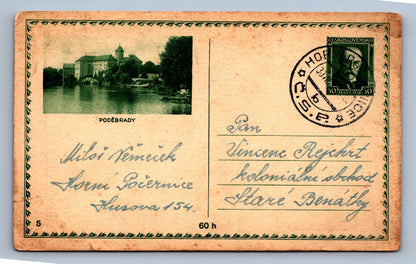 ČESKOSLOVENSKO
50 50
PODĚBRADY
Pan
Vincenc Rejchrt
koloniální obchod
Staré Benátky
Miloš Němeček
Horní Počernice
Husova 154.
5
60 h